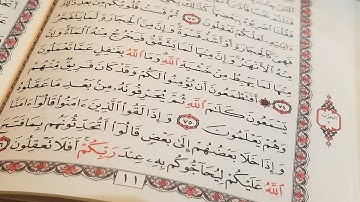 فَهِىَ كَٱلْحِجَارَةِ أَوْ أَشَدُّ قَسْوَةً وَإِنَّ مِنَ ٱلْحِجَارَةِ لَمَا يَتَفَجَّرُ
مِنْهُ ٱلْأَنْهَٰرُ وَإِنَّ مِنْهَا لَمَا يَشَّقَّقُ فَيَخْرُجُ مِنْهُ ٱلْمَآءُ وَإِنَّ
مِنْهَا لَمَا يَهْبِطُ مِنْ خَشْيَةِ ٱللَّهِ وَمَا ٱللَّهُ بِغَٰفِلٍ عَمَّا تَعْمَلُونَ
٧٤ أَفَتَطْمَعُونَ أَن يُؤْمِنُوا۟ لَكُمْ وَقَدْ كَانَ فَرِيقٌ مِّنْهُمْ
يَسْمَعُونَ كَلَٰمَ ٱللَّهِ ثُمَّ يُحَرِّفُونَهُۥ مِنۢ بَعْدِ مَا عَقَلُوهُ
وَهُمْ يَعْلَمُونَ ٧٥ وَإِذَا لَقُوا۟ ٱلَّذِينَ ءَامَنُوا۟ قَالُوٓا۟ ءَامَنَّا
وَإِذَا خَلَا بَعْضُهُمْ إِلَىٰ بَعْضٍ قَالُوٓا۟ أَتُحَدِّثُونَهُم بِمَا فَتَحَ
ٱللَّهُ عَلَيْكُمْ لِيُحَآجُّوكُم بِهِۦ عِندَ رَبِّكُمْ أَفَلَا تَعْقِلُونَ
١١